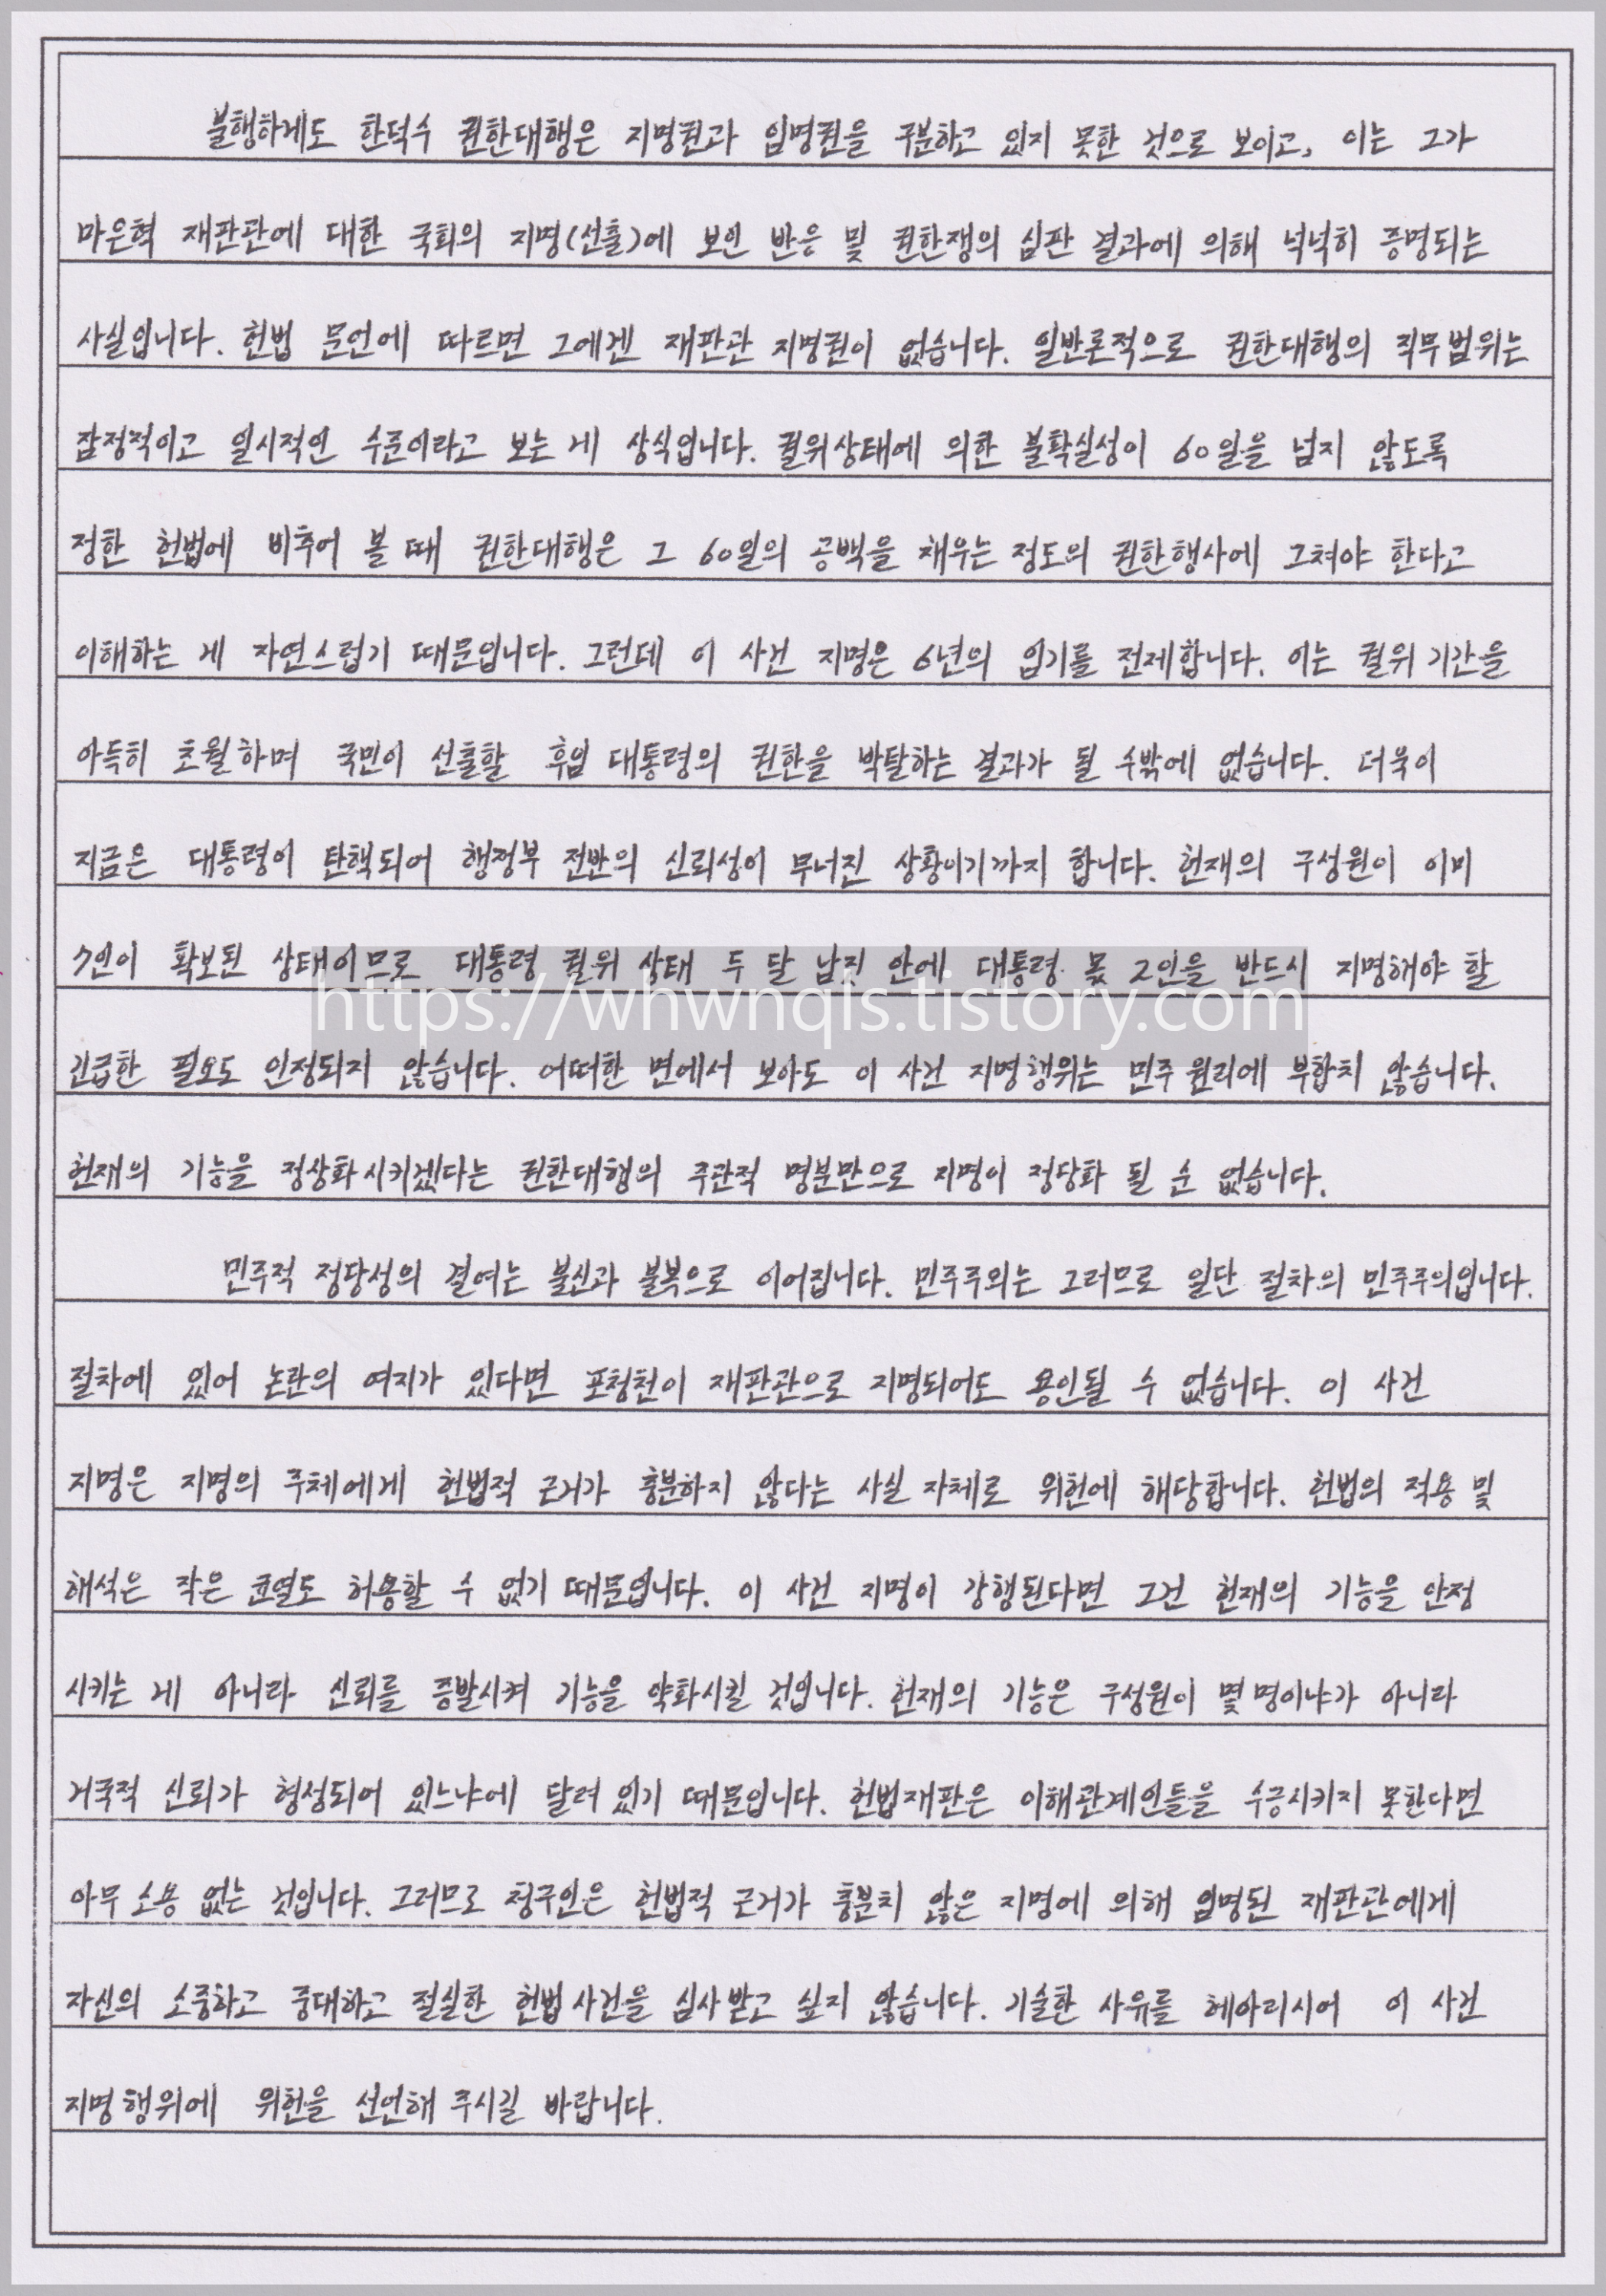 불행하게도 한덕수 권한대행은 지명권과 임명권을 구분하고 있지 못한 것으로 보이고, 이는 그가
마은혁 재판관에 대한 국회의 지명(선출)에 보인 반응 및 권한쟁의 심판 결과에 의해 넉넉히 증명되는
사실입니다. 헌법 문언에 따르면 그에겐 재판관 지명권이 없습니다. 일반론적으로 권한대행의 직무범위는
잠정적이고 일시적인 수준이라고 보는 게 상식입니다. 궐위상태에 의한 불확실성이 60일을 넘지 않도록
정한 헌법에 비추어 볼 때 권한대행은 그 60일의 공백을 채우는 정도의 권한행사에 그쳐야 한다고
이해하는 게 자연스럽기 때문입니다. 그런데 이 사건 지명은 6년의 임기를 전제합니다. 이는 궐위 기간을
아득히 초월하며 국민이 선출할 후임 대통령의 권한을 박탈하는 결과가 될 수밖에 없습니다. 더욱이
지금은 대통령이 탄핵되어 행정부 전반의 신뢰성이 무너진 상황이기까지 합니다. 헌재의 구성원이 이미
7인이 확보된 상태이므로 대통령 궐위 상태 두 달 남짓 안에 대통령 몫 2인을 반드시 지명해야 할
https://whwnqls.tistory.com
긴급한 필요도 인정되지 않습니다. 어떠한 면에서 보아도 이 사건 지명행위는 민주 원리에 부합치 않습니다.
헌재의 기능을 정상화시키겠다는 권한대행의 주관적 명분만으로 지명이 정당화 될 순 없습니다.
민주적 정당성의 결여는 불신과 불복으로 이어집니다. 민주주의는 그러므로 일단 절차의 민주주의입니다.
절차에 있어 논란의 여지가 있다면 포청천이 재판관으로 지명되어도 용인될 수 없습니다. 이 사건
지명은 지명의 주체에게 헌법적 근거가 충분하지 않다는 사실 자체로 위헌에 해당합니다. 헌법의 적용 및
해석은 작은 균열도 허용할 수 없기 때문입니다. 이 사건 지명이 강행된다면 그건 헌재의 기능을 안정
시키는 게 아니라 신뢰를 증발시켜 기능을 약화시킬 것입니다. 헌재의 기능은 구성원이 몇 명이냐가 아니라
거국적 신뢰가 형성되어 있느냐에 달려 있기 때문입니다. 헌법재판은 이해관계인들을 수긍시키지 못한다면
아무 소용 없는 것입니다. 그러므로 청구인은 헌법적 근거가 충분치 않은 지명에 의해 임명된 재판관에게
자신의 소중하고 중대하고 절실한 헌법사건을 심사받고 싶지 않습니다. 기술한 사유를 헤아리시어 이 사건
지명행위에 위헌을 선언해 주시길 바랍니다.